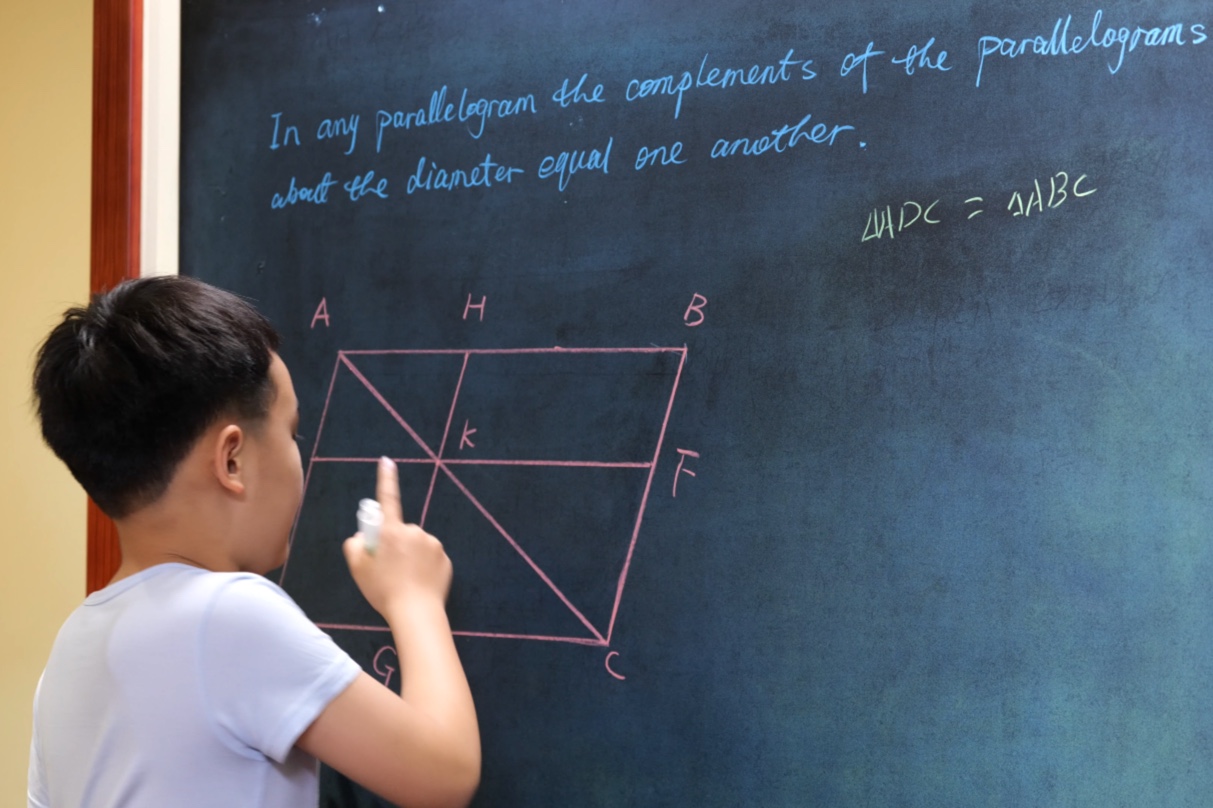 In any parallelogram the complements of the parallelograms
about the diameter equal one another.
△ADC = △ABC
A H B
K
F
G C